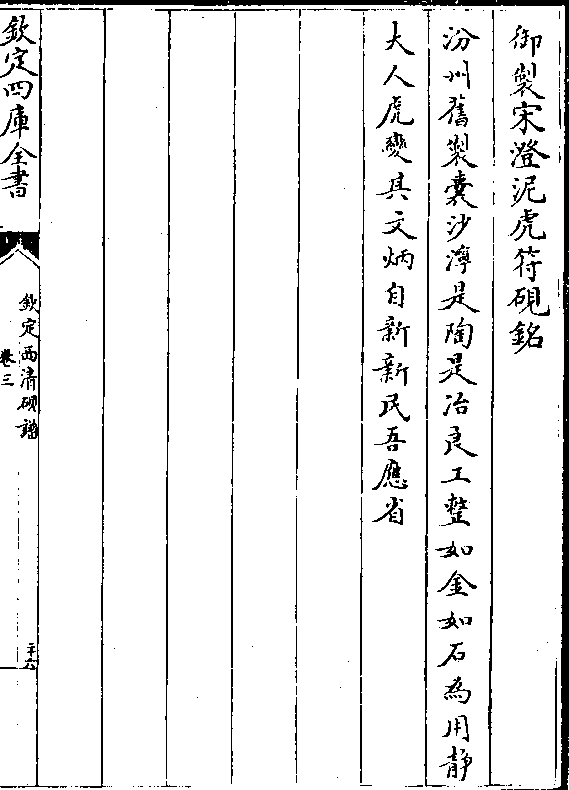 御製宋澄泥虎符硯銘
汾州舊製囊沙渟是陶是冶良工整如金如石為用靜
大人虎變其文炳自新新民吾應省
欽定四庫全書
欽定西清硯譜
卷三